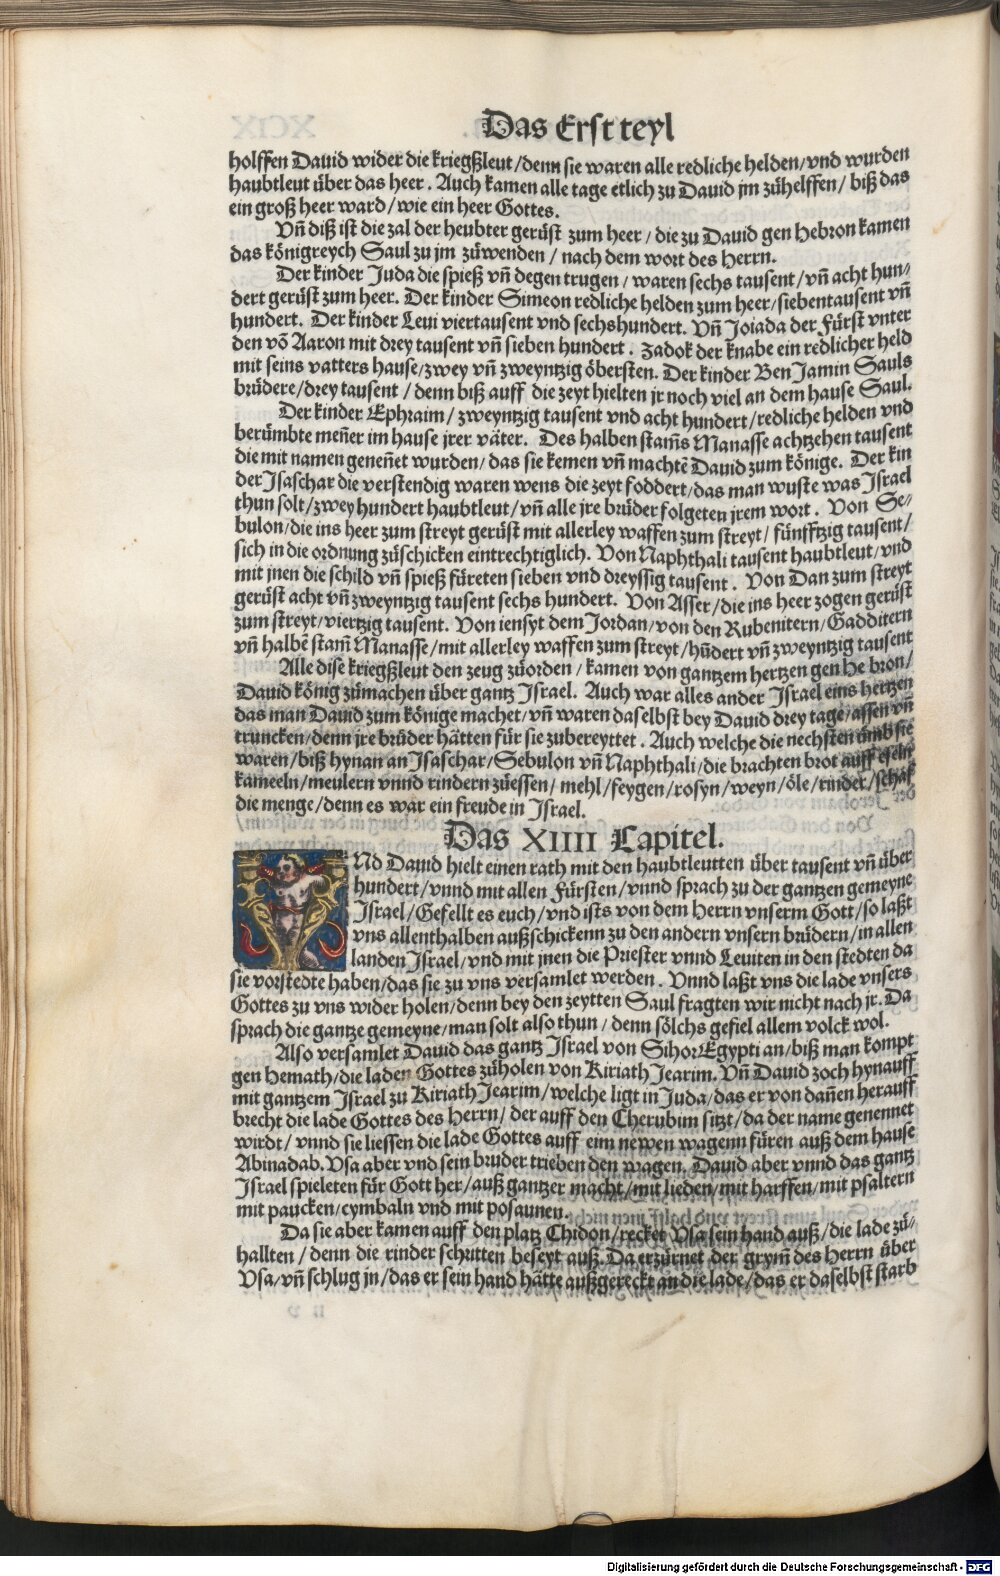 Das Erst teyl
holffen Dauid wider die kriegßleut/denn sie waren alle redliche helden/vnd wurden
haubtleut über das heer. Auch kamen alle tage etlich zu Dauid jm zůhelffen/ biß das
ein groß heer ward/wie ein heer Gottes.
Vñ diß ist die zal der heubter gerüst zum heer/die zu Dauid gen Hebron kamen
das königreych Saul zu jm zůwenden/ nach dem wort des Herrn.
Der kinder Juda die spieß vñ degen trugen/ waren sechs tausent/vñ acht hun⸗
dert gerüst zum heer. Der kinder Simeon redliche helden zum heer/siebentausent vñ
hundert. Der kinder Leui viertausent vnd sechshundert. Vñ Joiada der Fürst vnter
den võ Aaron mit drey tausent vñ sieben hundert. Zadok der knabe ein redlicher held
mit seins vatters hause/zwey vñ zweyntzig öbersten. Der kinder BenJamin Sauls
brüdere/drey tausent/ denn biß auff die zeyt hielten jr noch viel an dem hause Saul.
Der kinder Ephraim/ zweyntzig tausent vnd acht hundert/redliche helden vnd
berümbte meñer im hause jrer väter. Des halben stam̃s Manasse achtzehen tausent
die mit namen geneñet wurden/das sie kemen vñ machtẽ Dauid zum könige. Der kin
der Isaschar die verstendig waren wens die zeyt foddert/das man wuste was Israel
thun solt/zwey hundert haubtleut/vñ alle jre brüder folgeten jrem wort. Von Se⸗
bulon/die ins heer zum streyt gerüst mit allerley waffen zum streyt/ fünfftzig tausent/
sich in die ordnung zůschicken eintrechtiglich. Von Naphthali tausent haubtleut/vnd
mit jnen die schild vñ spieß füreten sieben vnd dreyssig tausent. Von Dan zum streyt
gerüst acht vñ zweyntzig tausent sechs hundert. Von Asser/die ins heer zogen gerüst
zum streyt/viertzig tausent. Von iensyt dem Jordan/von den Rubenitern/Gadditern
vñ halbẽ stam̃ Manasse/mit allerley waffen zum streyt/hũdert vñ zweyntzig tausent
Alle dise kriegßleut den zeug zůorden/ kamen von gantzem hertzen gen He bron/
Dauid könig zůmachen über gantz Israel. Auch war alles ander Israel eins hertzen
das man Dauid zum könige machet/vñ waren daselbst bey Dauid drey tage/assen vñ
truncken/denn jre brüder hätten für sie zubereyttet. Auch welche die nechsten ümb sie
waren/biß hynan an Isaschar/Sebulon vñ Naphthali/die brachten brot auff eseln
kameeln/meulern vnnd rindern zůessen/ mehl/feygen/rosyn/weyn/öle/rinder/schaf
die menge/denn es war ein freude in Israel.
Das XIIII Capitel.
VNd Dauid hielt einen rath mit den haubtleutten über tausent vñ über
hundert/vnnd mit allen Fürsten/vnnd sprach zu der gantzen gemeyne
Israel/Gefellt es euch/vnd ists von dem Herrn vnserm Gott/so laßt
vns allenthalben außschickenn zu den andern vnsern brüdern/in allen
landen Israel/vnd mit jnen die Priester vnnd Leuiten in den stedten da
sie vorstedte haben/das sie zu vns versamlet werden. Vnnd laßt vns die lade vnsers
Gottes zu vns wider holen/denn bey den zeytten Saul fragten wir nicht nach jr. Da
sprach die gantze gemeyne/man solt also thun/ denn sölchs gefiel allem volck wol.
Also versamlet Dauid das gantz Israel von Sihor Egypti an/biß man kompt
gen Hemath/die laden Gottes zůholen von Kiriath Jearim. Vñ Dauid zoch hynauff
mit gantzem Israel zu Kiriath Jearim/welche ligt in Juda/das er von dañen herauff
brecht die lade Gottes des Herrn/ der auff den Cherubim sitzt/da der name genennet
wirdt/ vnnd sie liessen die lade Gottes auff eim newen wagenn füren auß dem hause
Abinadab. Vsa aber vnd sein bruder trieben den wagen. Dauid aber vnnd das gantz
Israel spieleten für Gott her/auß gantzer macht/mit lieden/mit harffen/mit psaltern
mit paucken/cymbaln vnd mit posaunen.
Da sie aber kamen auff den platz Chidon/recket Vsa sein hand auß/die lade zů⸗
hallten/ denn die rinder schritten beseyt auß. Da erzürnet der grym̃ des Herrn über
Vsa/vñ schlug jn/das er sein hand hätte außgereckt an die lade/das er daselbst starb
Digitalisierung gefördert durch die Deutsche Forschungsgemeinschaft - DFG